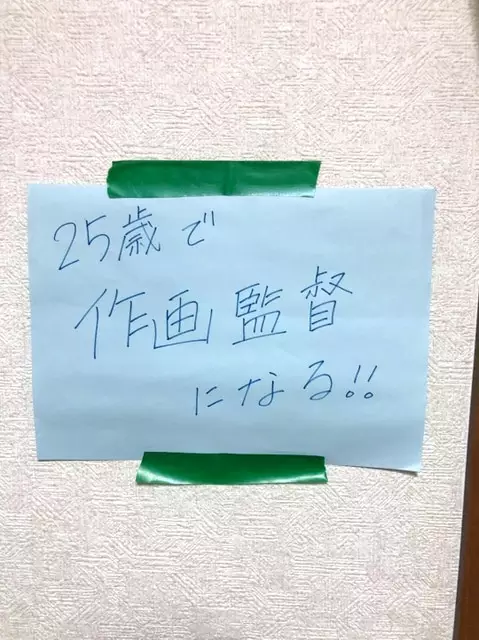 25歳で
作画監督
になる!!